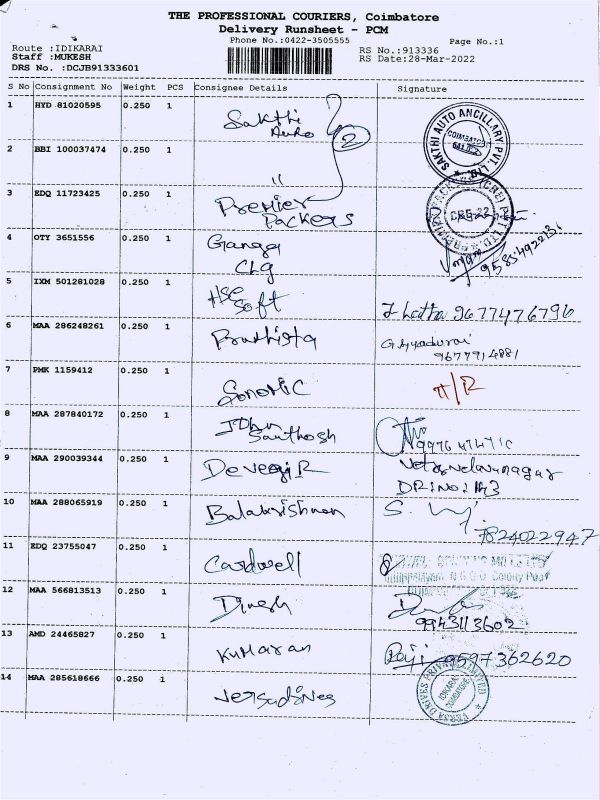 THE PROFESSIONAL COURIERS, Coimbatore
Delivery Runsheet - PCM
Phone No.:0422-3505555
Page No.:1
Route :IDIKARAI
RS No.:913336
Staff :MUKESH
RS Date:28-Mar-2022
DRS No. :DCJB91333601
S No Consignment No Weight PCS Consignee Details Signature
1 HYD 81020595 0.250 1 Sakthi Auto
2
SAKTHI AUTO ANCILLARY PVT. LTD.
COIMBATORE
2 BBI 100037474 0.250 1 "
3 EDQ 11723425 0.250 1 Premier Packers
4 OTY 3651556 0.250 1 Ganga Clg
5 IXM 501281028 0.250 1 Hse Soft J. Latha 9677476796
6 MAA 286248261 0.250 1 Prathista
9677914881
7 PMK 1159412 0.250 1 Sonoric
8 MAA 287840172 0.250 1 JDhn Santhosh
9 MAA 290039344 0.250 1
DR:No: 143
10 MAA 288065919 0.250 1 Balakrishnan
7824022947
11 EDQ 23755047 0.250 1 Cardwell
N G G O Colony Post
12 MAA 566813513 0.250 1 Dinesh
9943113602
13 AMD 24465827 0.250 1 Kumaran
9597362620
14 MAA 285618666 0.250 1
VERSA DRIVES PRIVATE LIMITED
IDIKARAI
COIMBATORE